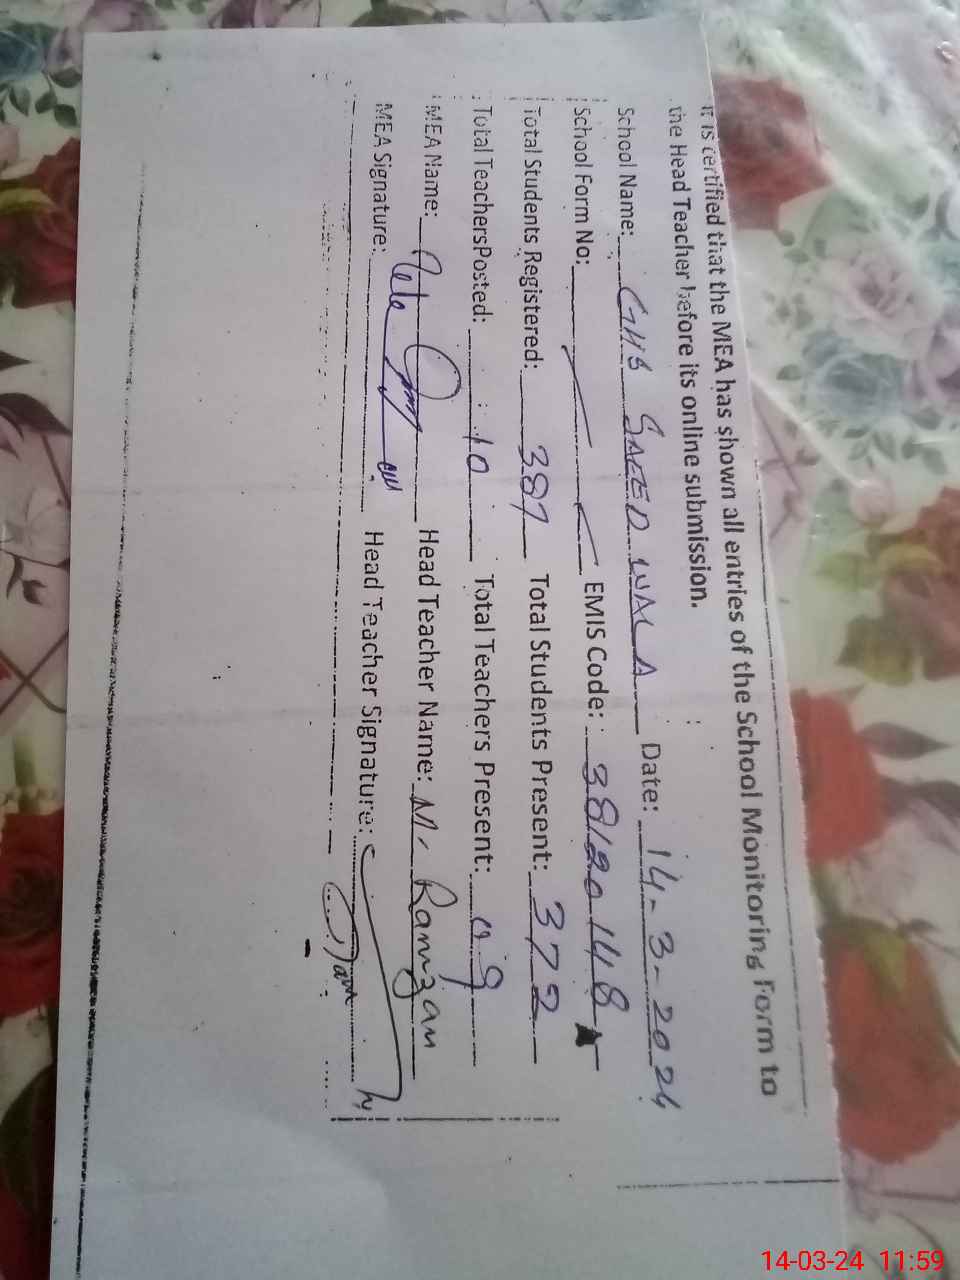 It is certified that the MEA has shown all entries of the School Monitoring Form to
the Head Teacher before its online submission.
School Name: GHS SAEED WALA Date: 14-3-2024
School Form No: EMIS Code: 38120148
Total Students Registered: 387 Total Students Present: 372
Total TeachersPosted: 10 Total Teachers Present: 09
MEA Name: Head Teacher Name: M. Ramzan
MEA Signature: Head Teacher Signature:
14-03-24 11:59